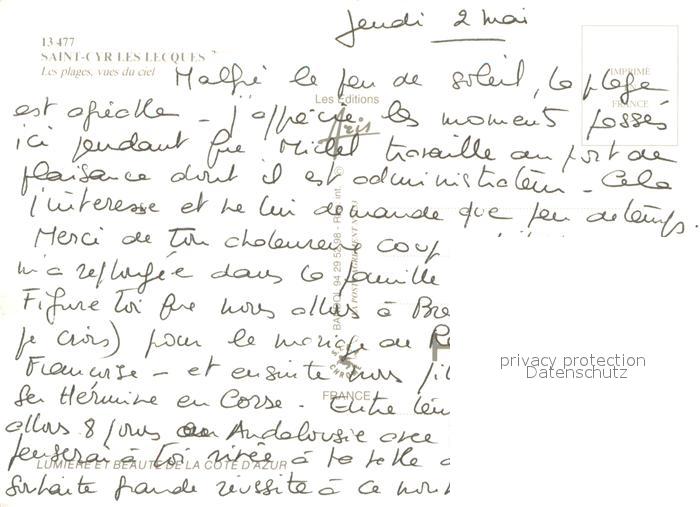 Jeudi 2 mai
13 477
SAINT-CYR LES LECQUES
Les plages, vues du ciel
IMPRIMÉ
EN
FRANCE
Malgré le peu de soleil, la plage
est agréable - j'apprécie les moments passés
Les Éditions
Aris
ici pendant que Michel travaille au port de
plaisance dont il est administrateur - Cela
l'intéresse et ne lui demande que peu de temps.
Merci de ton chaleureux coup
m'a replongée dans la famille
Figure toi que nous allons à Bre
je crois) pour le mariage de
Françoise - et ensuite nous
ser Hermine en Corse. Entre
FRANCE
allons 8 jours en Andalousie avec
penserai à toi à ta
LUMIÈRE ET BEAUTÉ DE LA CÔTE D'AZUR
souhaite grande réussite à ce
BANDOL 94 29 52 98
privacy protection
Datenschutz